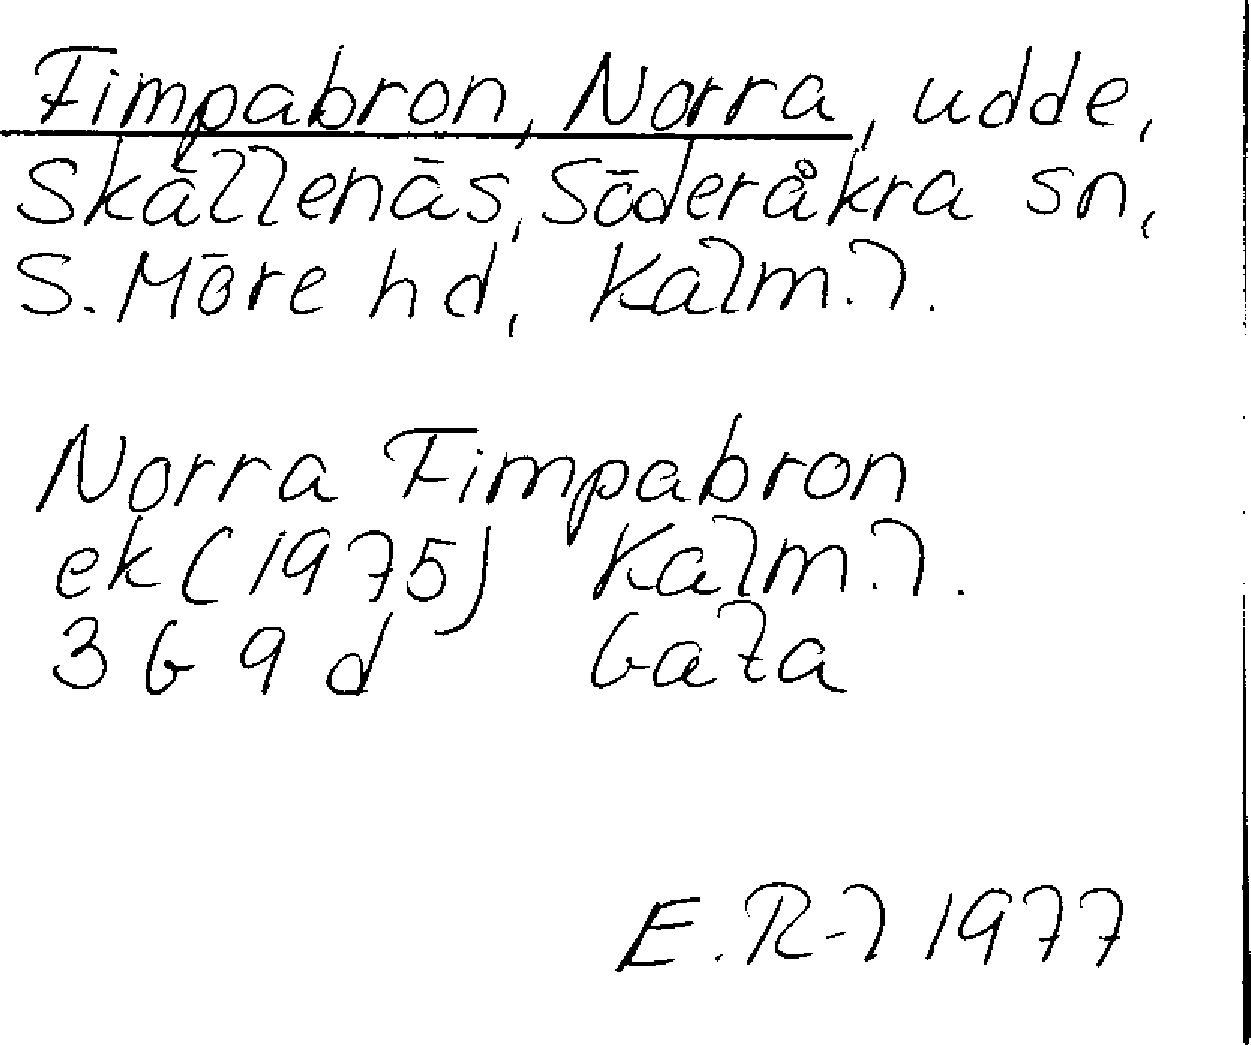 Fimpabron, Norra, udde,
Skällenäs, Söderåkra sn,
S. Möre hd, Kalm. l.
Norra Fimpabron
ek (1975) Kalm. l.
3 G 9 d Gata
E. R-l 1977